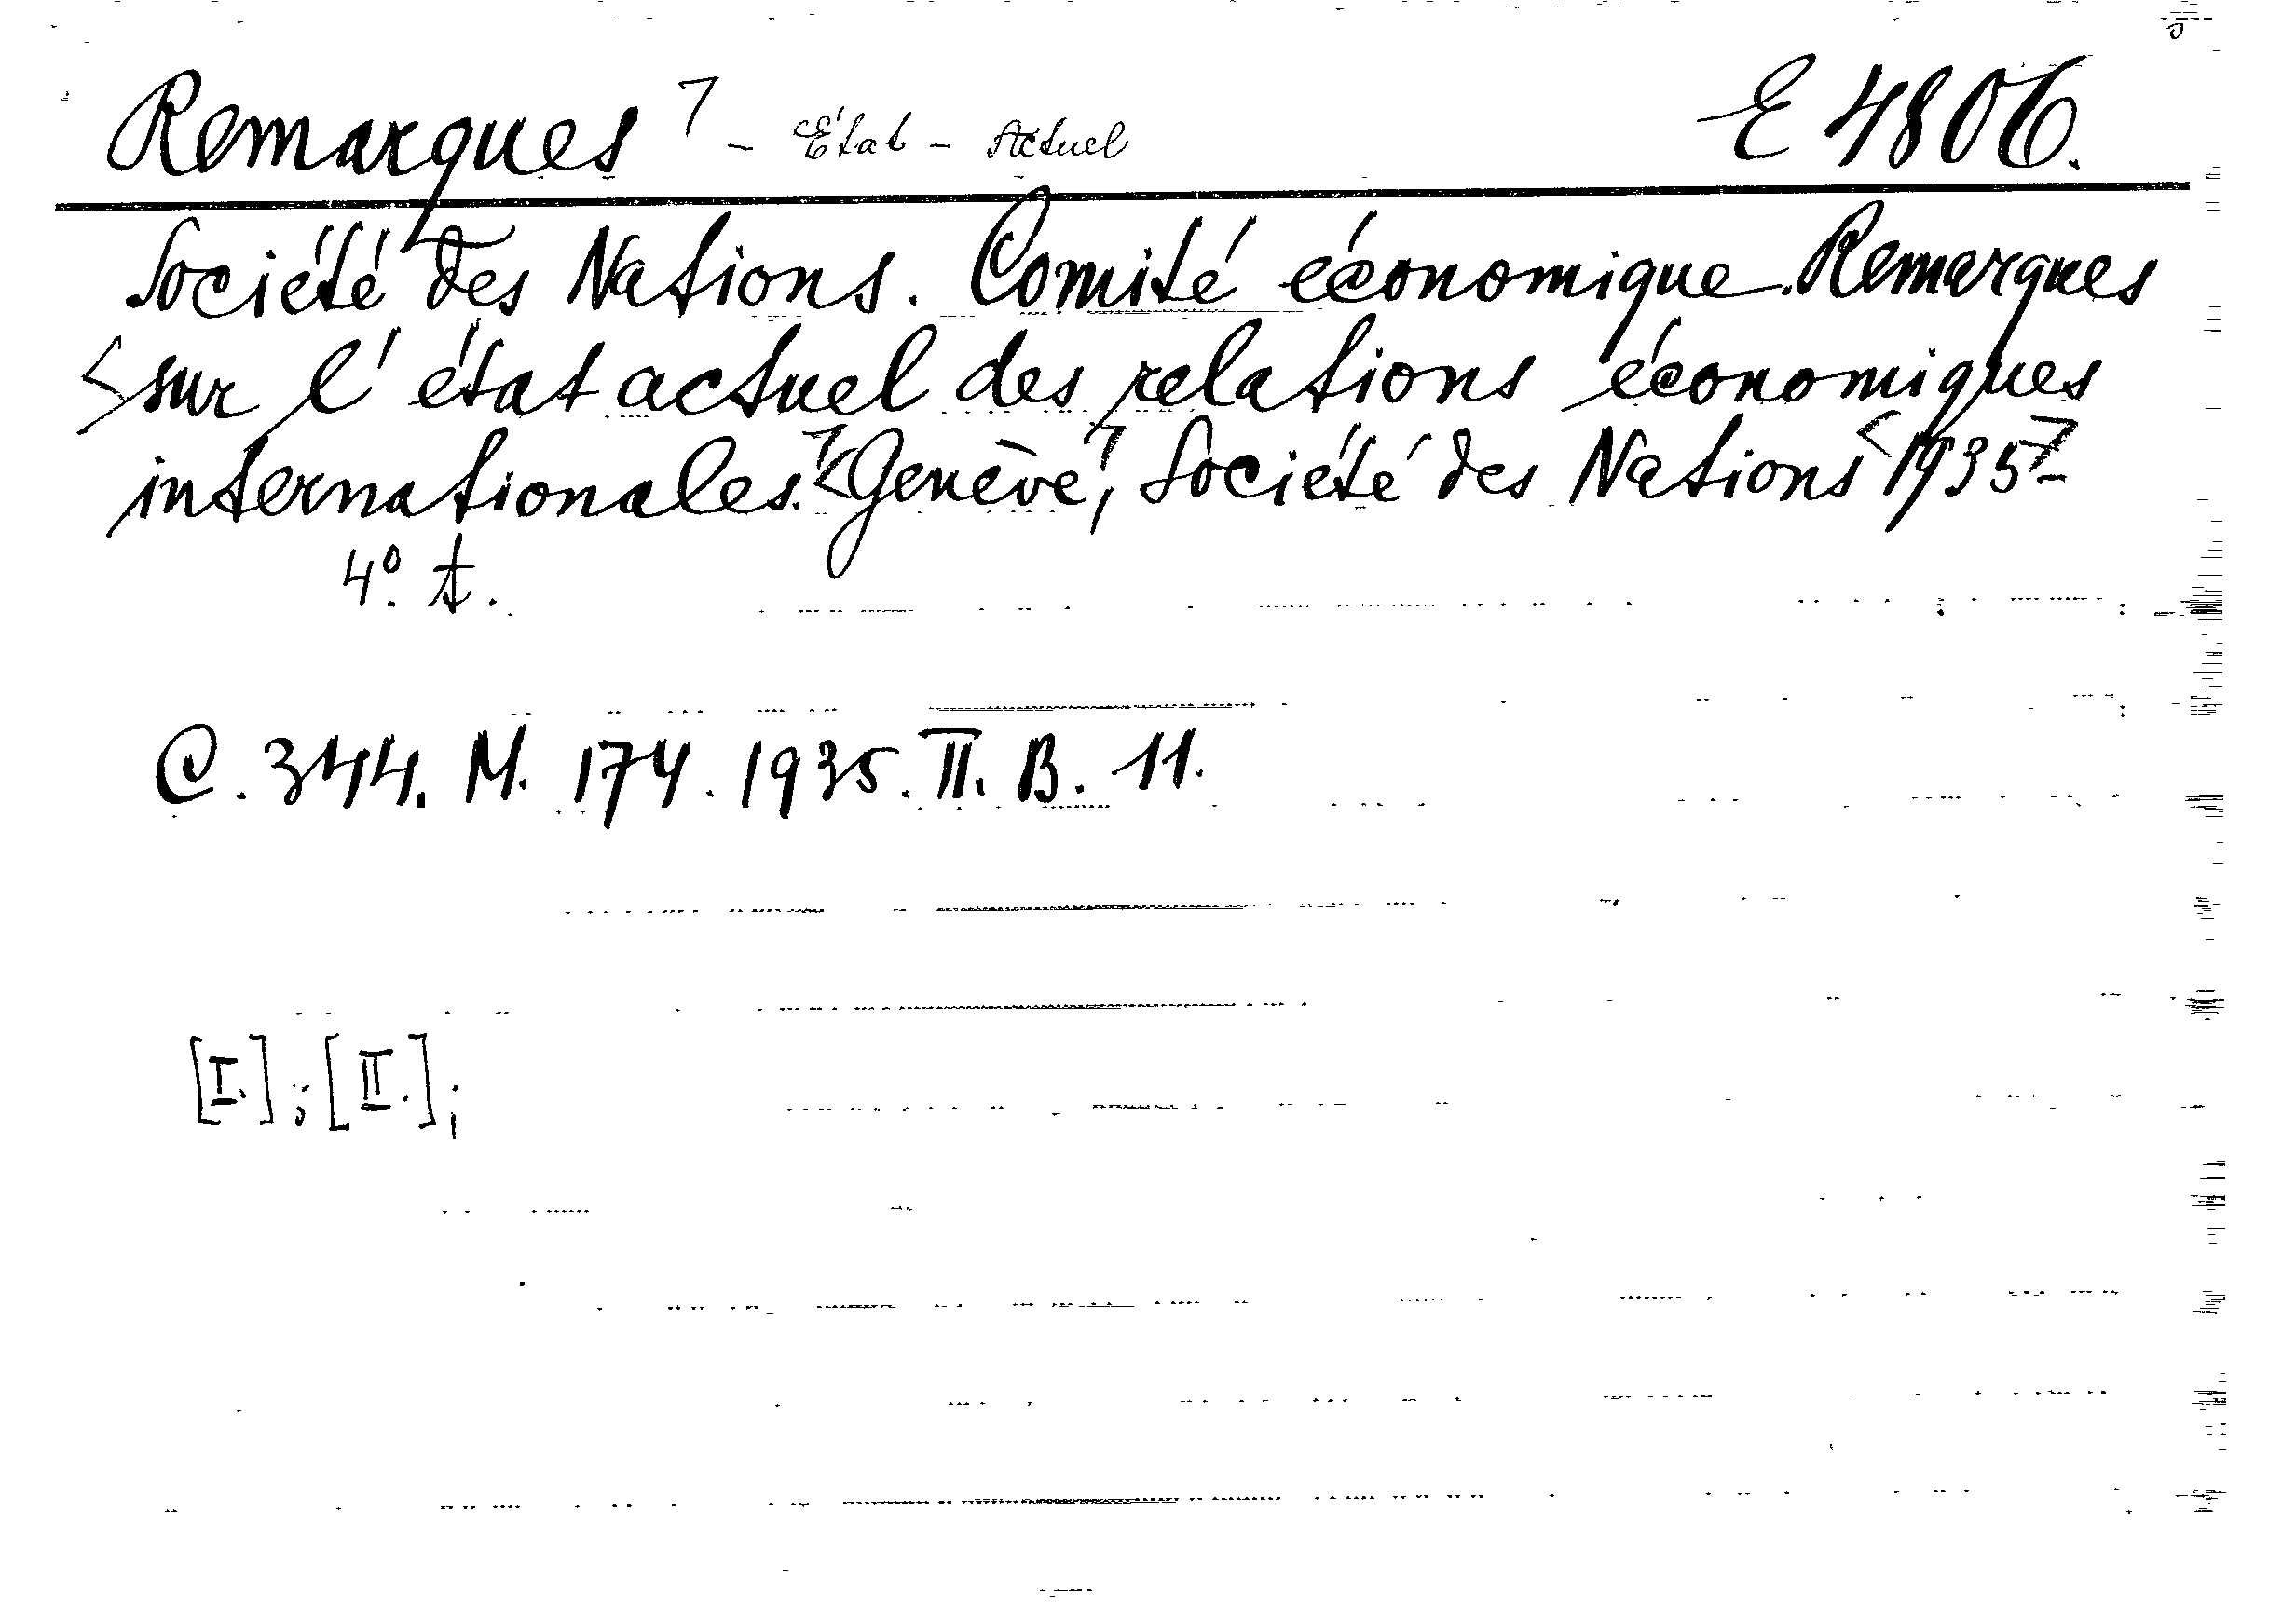 Remarques - État - Actuel E 4806.
Société des Nations. Comité économique. Remarques
sur l'état actuel des relations économiques
internationales. Genève, Société des Nations 1935-
4°.
C. 344. M. 174. 1935. II. B. 11.
[I.]; [II.];